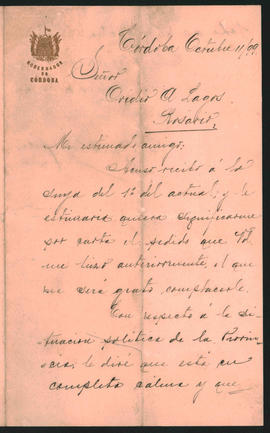 GOBERNADOR
DE
CÓRDOBA
Córdoba Octubre 11/99
Señor
Ovidio A Lagos
Rosario
Mi estimado amigo:
Acuso recibo á la
suya del 1º del actual, y le
estimaria quiera significarme
por carta el pedido que Vd
me hizo anteriormente, el que
me será grato complacerle.
Con respecto á la si-
tuacion politica de la Provin-
cia, le diré que está en
completa calma y que